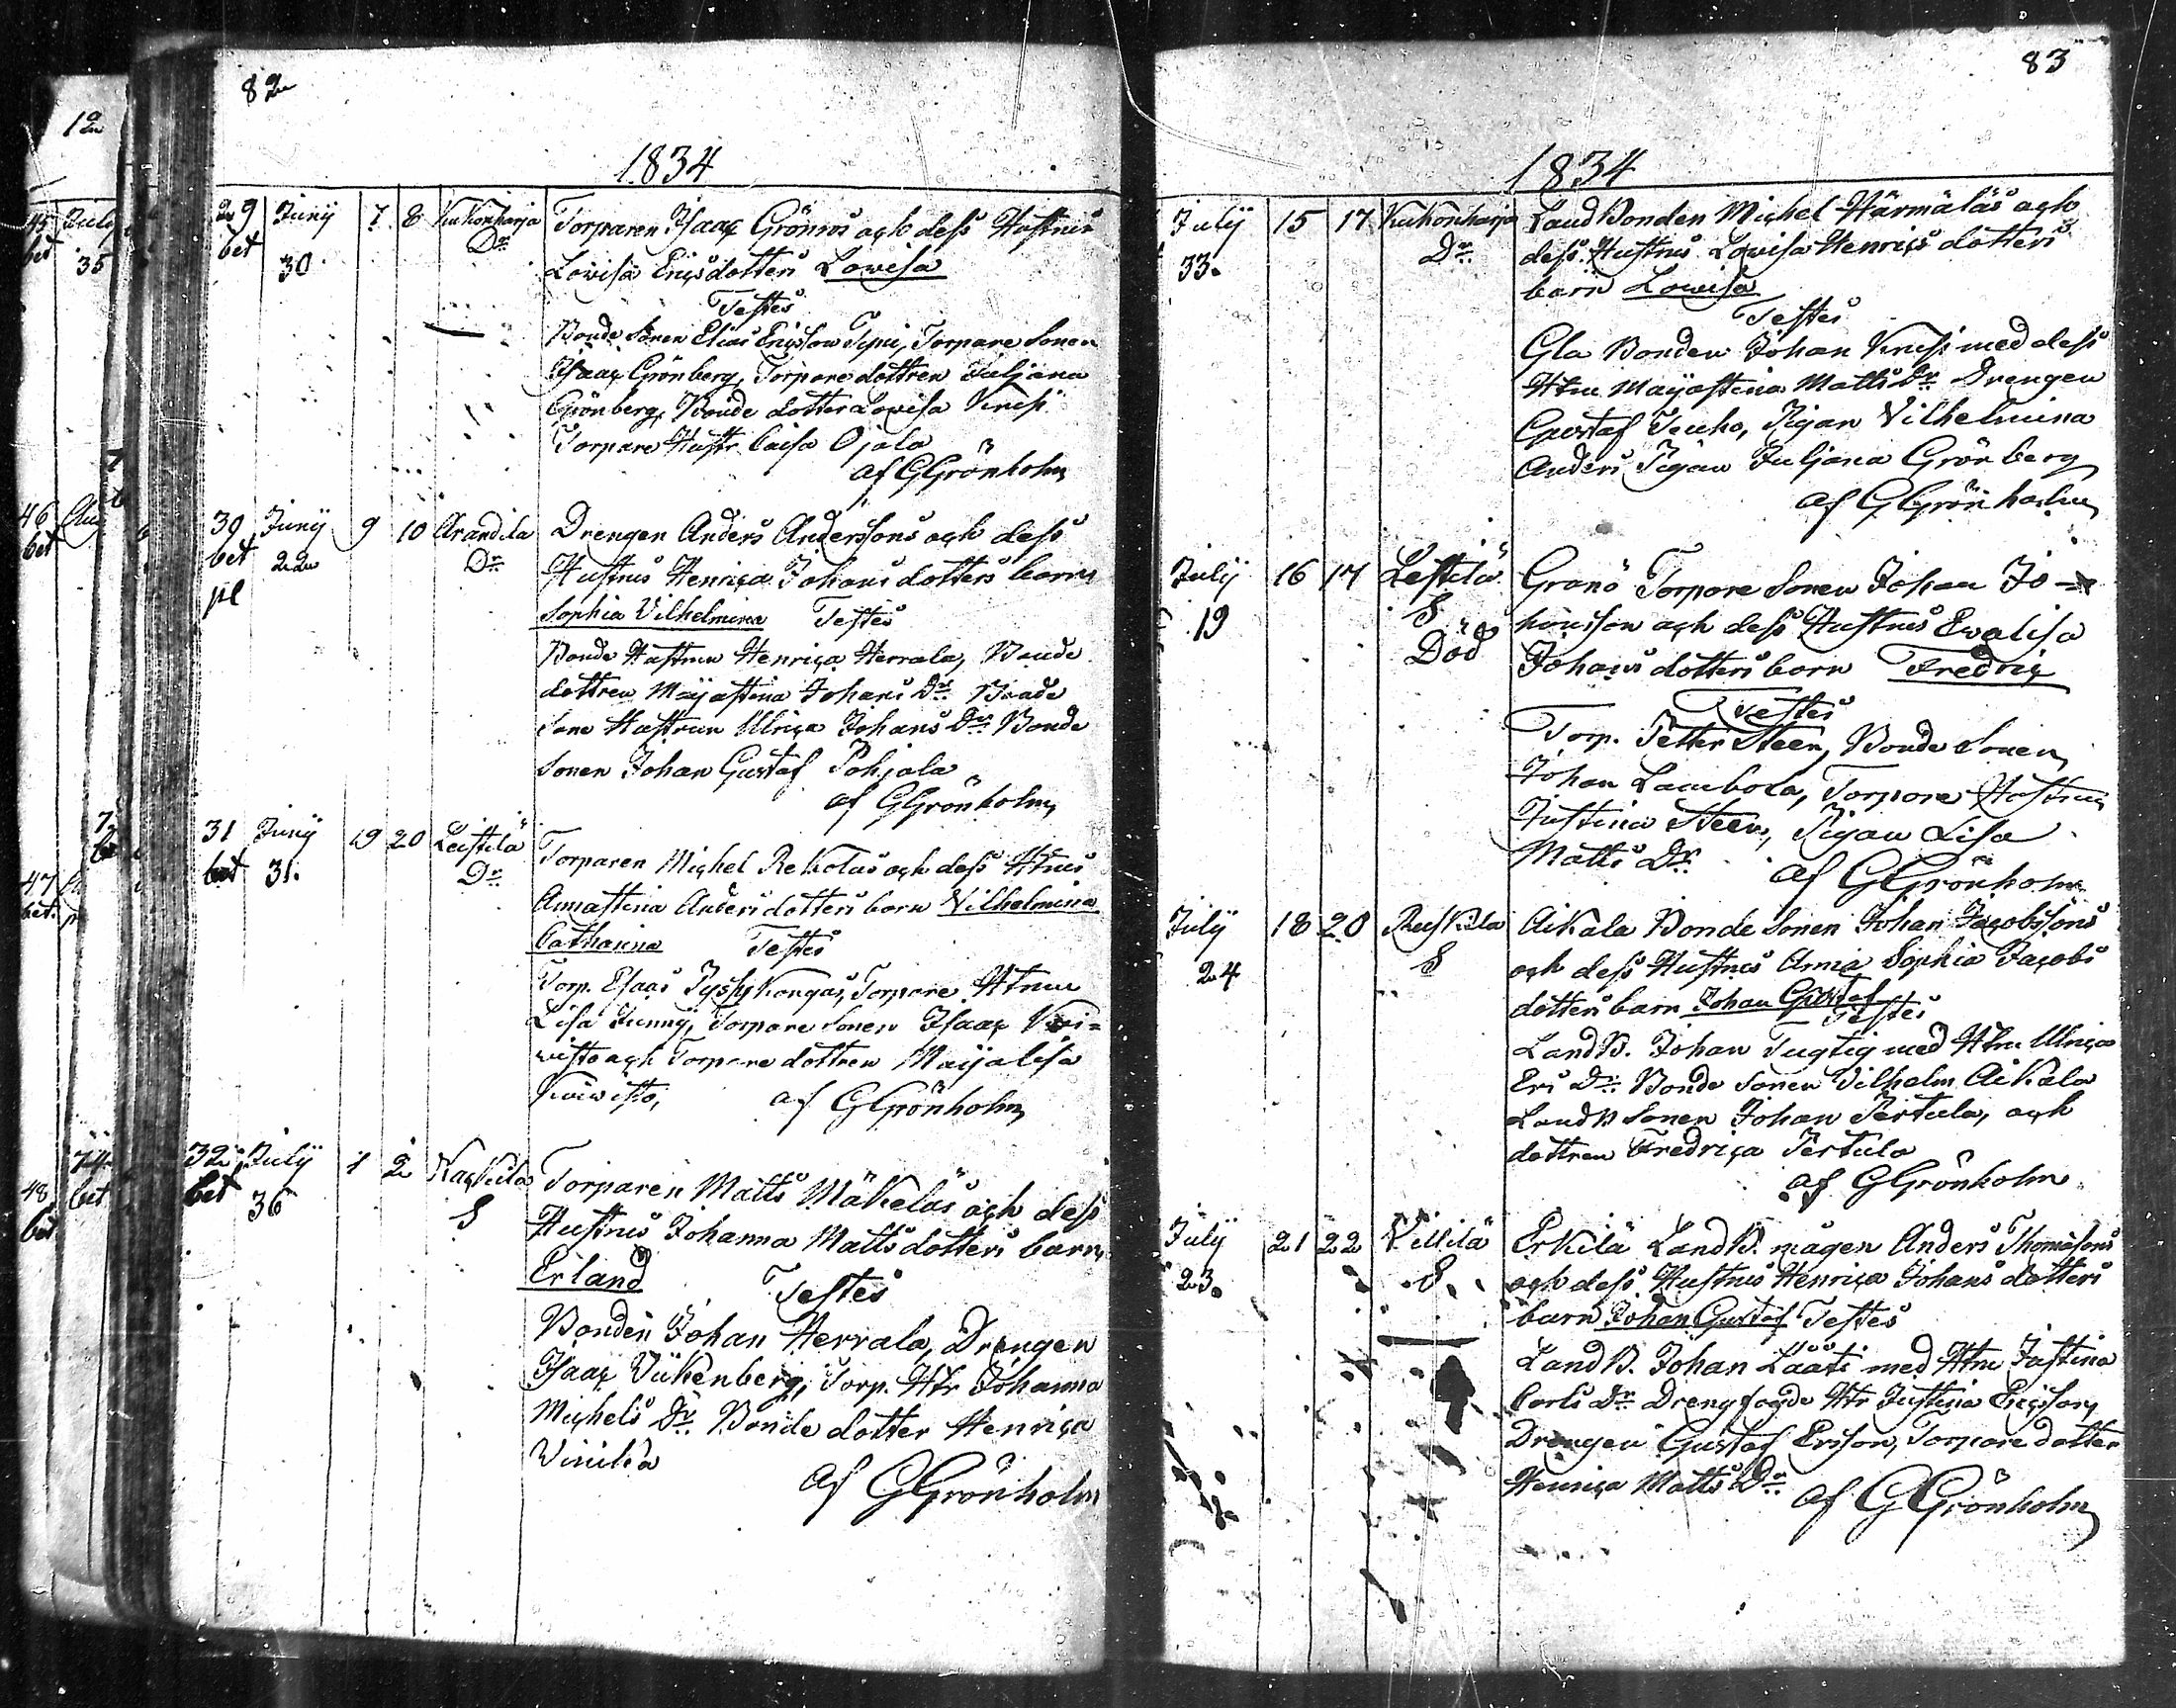 82
1834
29 Junij 7. 8 Kukonharja Torparen Isaac Grönros och dess Hustrus
bet 30 Dr Lovisa Ericsdotters Lowisa
Testes
Bonde Sonen Elias Ericsson Sipi, Torpare Sonen
Isaac Grönberg, Torpare dottren Juljana
Grönberg, Bonde dotter Lovisa Krusi
Torpare Hustr Caisa Ojala
af GGrönholm
30 Junij 9 10 Arandila Drengen Anders Anderssons och dess
bet 22 Dr Hustrus Henrica Johans dotters barn
pl Sophia Vilhelmina Testes
Bonde Hustrun Henrica Herrala, Bonde
dottren Majastina Johans Dr Bonde
Sone Hustrun Ulrica Johans Dr Bonde
Sonen Johan Gustaf Pohjala
af GGrönholm
31 Junij 19 20 Leistilä Torparen Michel Rekolas och dess Htrus
bet 31. Dr Annastina Anders dotters barn Vilhelmina
Catharina Testes
Torp. Esaas Torpare Htrun
Lisa Junnij, Torpare Sonen Isaac Koi=
wisto och Torpare dottren Maijalisa
Koiwisto, af GGrönholm
32 Julij 1 2 Kackila Torparen Matts Mäkeläs och dess
bet 36 S Hustrus Johanna Matts dotters barn
Erland Testes
Bonden Johan Herrala, Drengen
Isaac Vükenberg, Torp. Htr Johanna
Michels Dr. Bonde dotter Henrica
Vinikä
af GGrönholm
83
1834
Julij 15 17 Kukonharja Land Bonden Michel Härmäläs och
33. Dr dess Hustrus Lovisa Henrics dotters
barn Lowisa
Testes
Gla Bonden Johan Krusi med dess
Htru Majastina Matts Dr Drengen
Gustaf Teuho, Pigan Vilhelmina
Anders Pigan Juljana Grönberg
af GGrönholm
Julij 16 17 Leistilä Granö Torpare Sonen Johan Jo-
19 S hansson och dess Hustrus Ewalisa
Död Johans dotters barn Fredric
Testes
Torp. Petter Steen, Bonde Sonen
Johan Lambola, Torpare Hustrun
Justina Steen, Pigan Lisa
Matts Dr. af GGrönholm
Julij 18 20 Ruskila Aikala Bonde Sonen Johan Jacobssons
24 S och dess Hustrus Anna Sophia Jacobs
dotters barn Johan Gustaf
Testes
Land B. Johan Tugtig med Htru Ulrica
Ers Dr. Bonde Sonen Vilhelm Aikala
Land B Sonen Johan Pertula, och
dottren Fredrica Pertula
af GGrönholm
Julij 21 22 Villilä Erkilä Land B. mågen Anders Thomasons
23. S. och dess Hustrus Henrica Johans dotters
barn Johan Gustaf Testes
Land B. Johan Lääti med Htru Justina
Carls Dr Drengfogde Htr Justina Ericson,
Drengen Gustaf Ersson, Torpare dotter
Henrica Matts Dr af GGrönholm